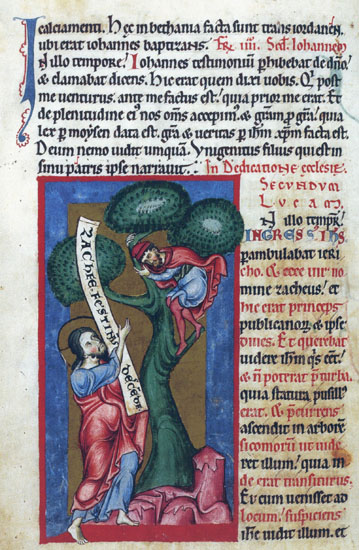 calciamenti. Hęc in bethania facta sunt trans iordanen
ubi erat iohannes baptizans. Fr iiii. Scd. Iohannem
In illo tempore! Iohannes testimoniū p̄hibebat de dn̄o/
& clamabat dicens. Hic erat quem dixi vobis. Q̇ post
me venturus. ante me factus est! quia prior me erat. Et
de plenitudine ei' nos om̄s accepim'/ & gram̄ p̄ grā! quia
lex p̄ moysen data est. grā & veritas p̄ ihm̄ xp̄m facta est.
Deum nemo vidit umquā. Vnigenitus filius qui est in
sinu patris ipse narravit. In Dedicatione ecclesię.
SECVNDVM
LVCAM
In illo tempr̄!
INGRESS' IHS
p̄ambulabat ieri
cho. & ecce vir no
mine zacheus! et
hic erat princeps
publicanorꝝ & ipse
dives. Et querebat
videre ihm̄ q̇s eēt!
& n̄ poterat p̄ turba.
quia statura pusill'
erat. & p̄currens
ascendit in arborē
sicomorū ut vide
ret illum! quia in
de erat transiturus.
Et cum venisset ad
locum/ suspiciens
ihc vidit illum. et
ZACHEE FESTINANS
DECENDE